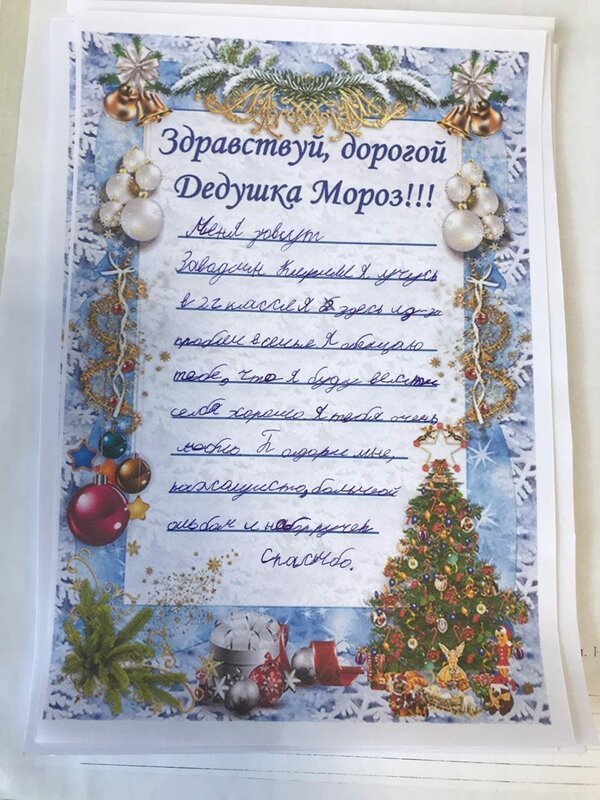 Здравствуй, дорогой
Дедушка Мороз!!!
Меня зовут
Кирилл Я учусь
в 2г классе Я здесь из-за
проблем в семье. Я обещаю
тебе, что я буду вести
себя хорошо Я тебя очень
люблю Подари мне,
пожалуйста, большой
альбом и набор ручек
Спасибо.